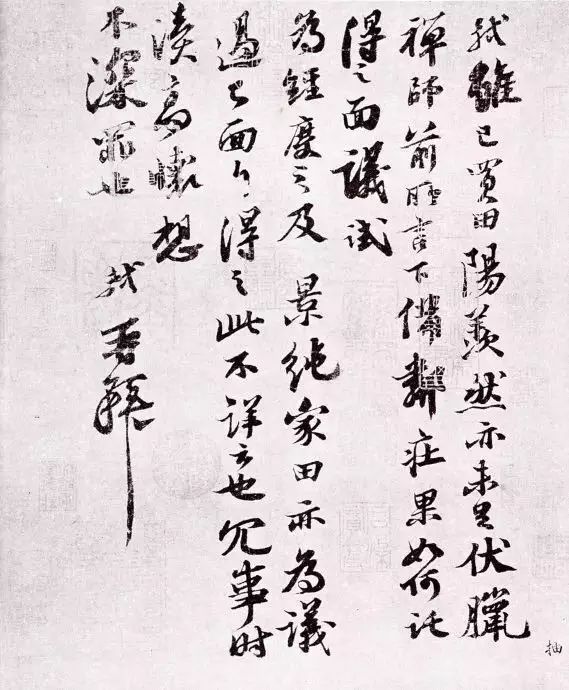 軾雖已買田陽羨然亦未足伏臘
禪師前所言下備鄰庄果如何託
得之面議試
為經度之及 景純家田亦為議
過已面白得之此不詳云也冗事時
瀆高懷想
不深罪也 軾再拜
抽